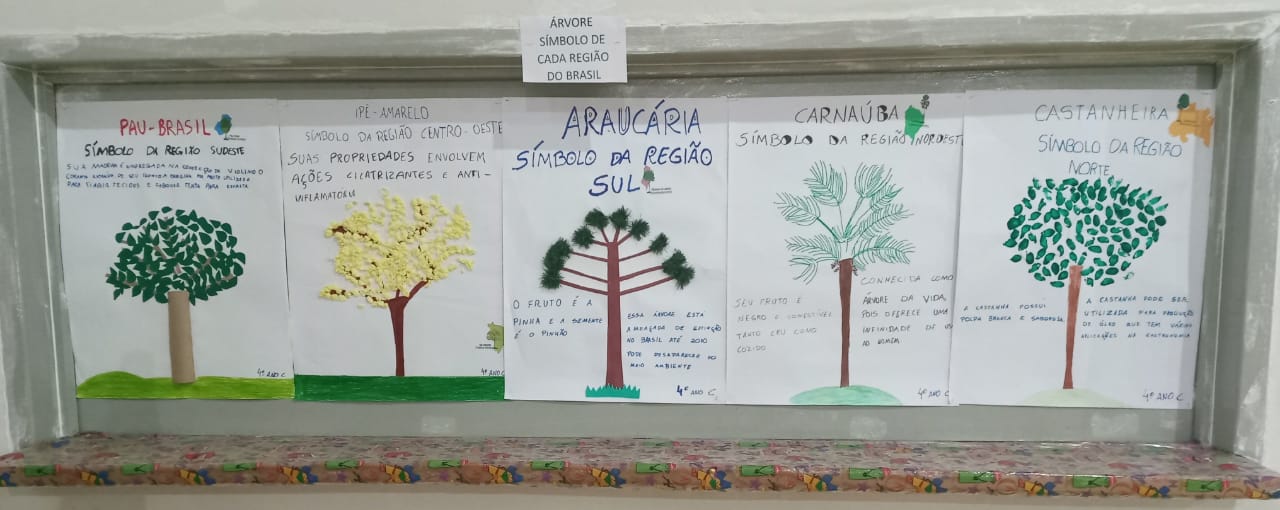 ÁRVORE
SÍMBOLO DE
CADA REGIÃO
DO BRASIL
PAU-BRASIL
SÍMBOLO DA REGIÃO SUDESTE
SUA MADEIRA É EMPREGADA NA CONFECÇÃO DE VIOLINO
PARA TINGIR TECIDOS E TINTA PARA
4º ANO C
IPÊ-AMARELO
SÍMBOLO DA REGIÃO CENTRO-OESTE
SUAS PROPRIEDADES ENVOLVEM
AÇÕES CICATRIZANTES E ANTI-
INFLAMATORIA
4º ANO C
ARAUCÁRIA
SÍMBOLO DA REGIÃO
SUL
O FRUTO É A
PINHA E A SEMENTE
É O PINHÃO
ESSA ÁRVORE ESTA
AMEAÇADA DE EXTINÇÃO
NO BRASIL ATÉ 2070
PODE DESAPARECER DO
MEIO AMBIENTE
4º ANO C
CARNAÚBA
SÍMBOLO DA REGIÃO NORDEST
SEU FRUTO É
NEGRO E COMESTÍVEL
TANTO CRU COMO
COZIDO
CONHECIDA COMO
ÁRVORE DA VIDA,
POIS OFERECE UMA
INFINIDADE DE
AO HOMEM
4º ANO C
CASTANHEIRA
SÍMBOLO DA REGIÃO
NORTE
A CASTANHA POSSUI
POLPA BRANCA E SABOROSA
A CASTANHA PODE SER
UTILIZADA PARA PRODUÇÃO
DE ÓLEO QUE TEM VÁRIAS
APLICAÇÕES NA GASTRONOMIA
4º ANO C